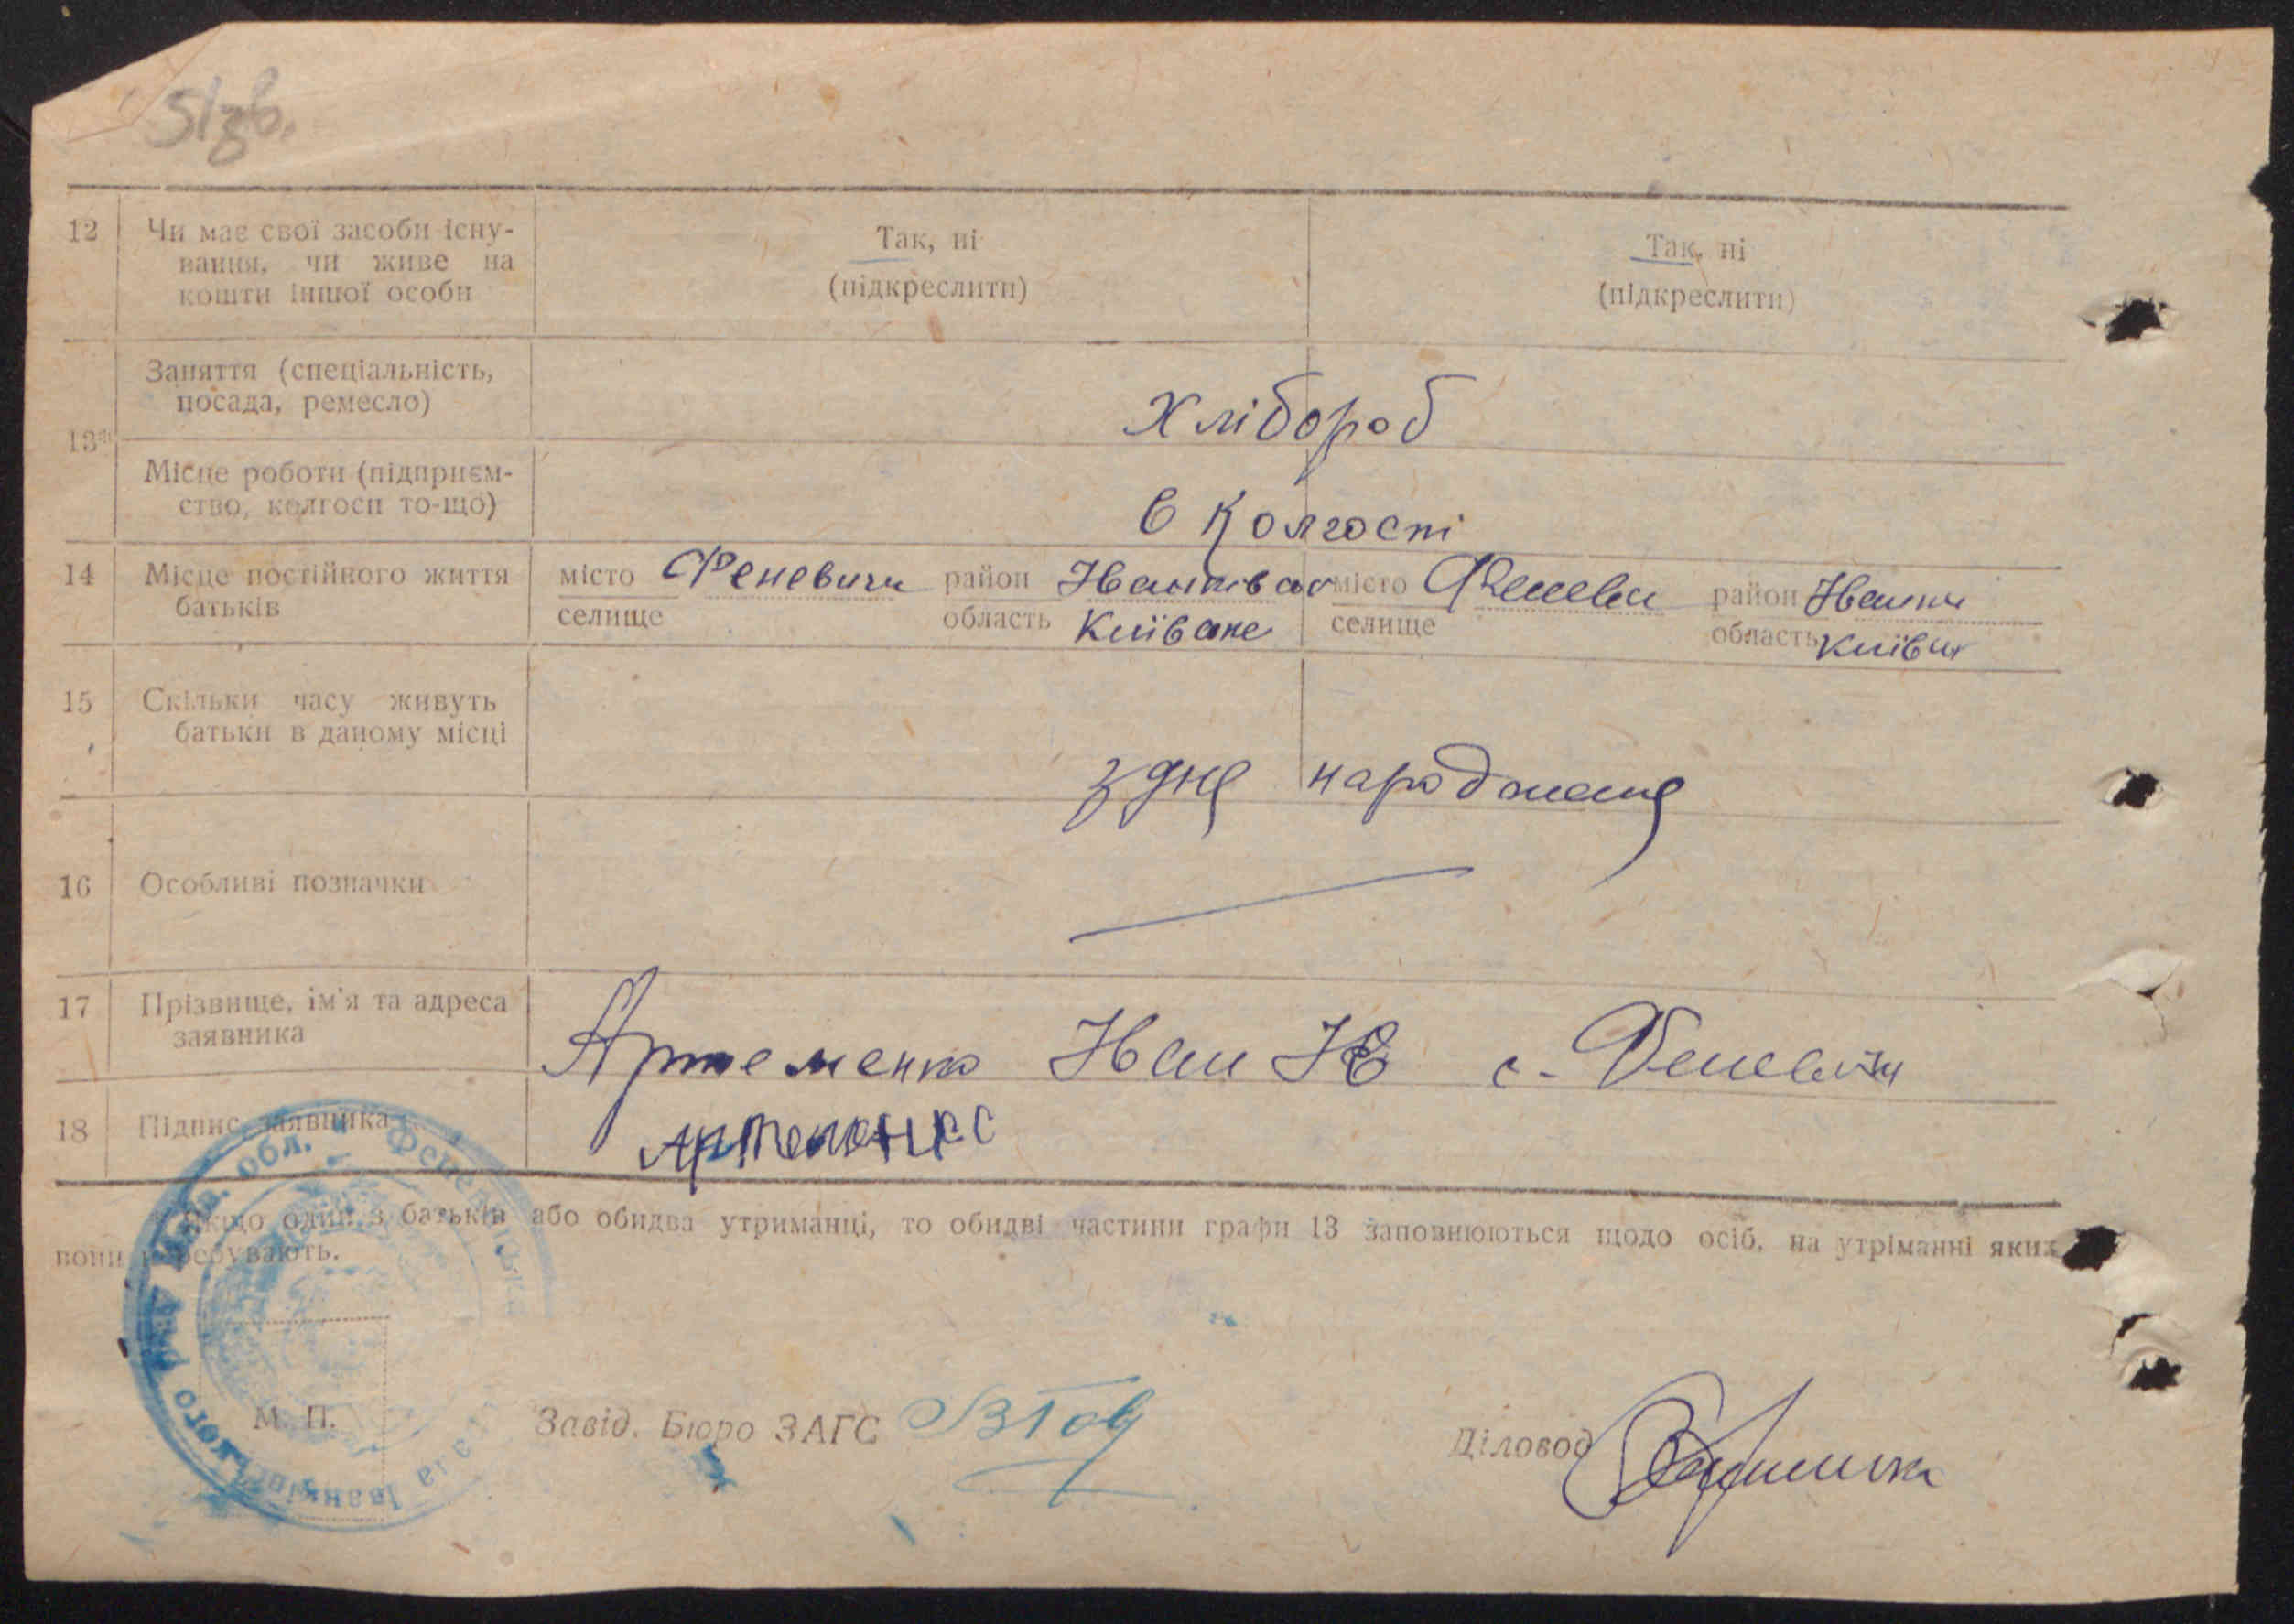 51зв.
12 Чи має свої засоби існу-
вання, чи живе на
кошти іншої особи
Так, ні
(підкреслити)
Так, ні
(підкреслити)
13*)
Заняття (спеціальність,
посада, ремесло)
Хлібороб
Місце роботи (підприєм-
ство, колгосп то-що)
в колгоспі
14 Місце постійного життя
батьків
місто Феневичи район
селище область Київске
місто район
селище область
15 Скільки часу живуть
батьки в даному місці
з дня народження
16 Особливі позначки
17 Прізвище, ім'я та адреса
заявника
Артеменко Іван с. Феневичи
18 Підпис заявника
* Якщо один з батьків або обидва утриманці, то обидві частини графи 13 заповнюються щодо осіб, на утріманні яких
вони перебувають.
М. П.
Завід. Бюро ЗАГС
Діловод